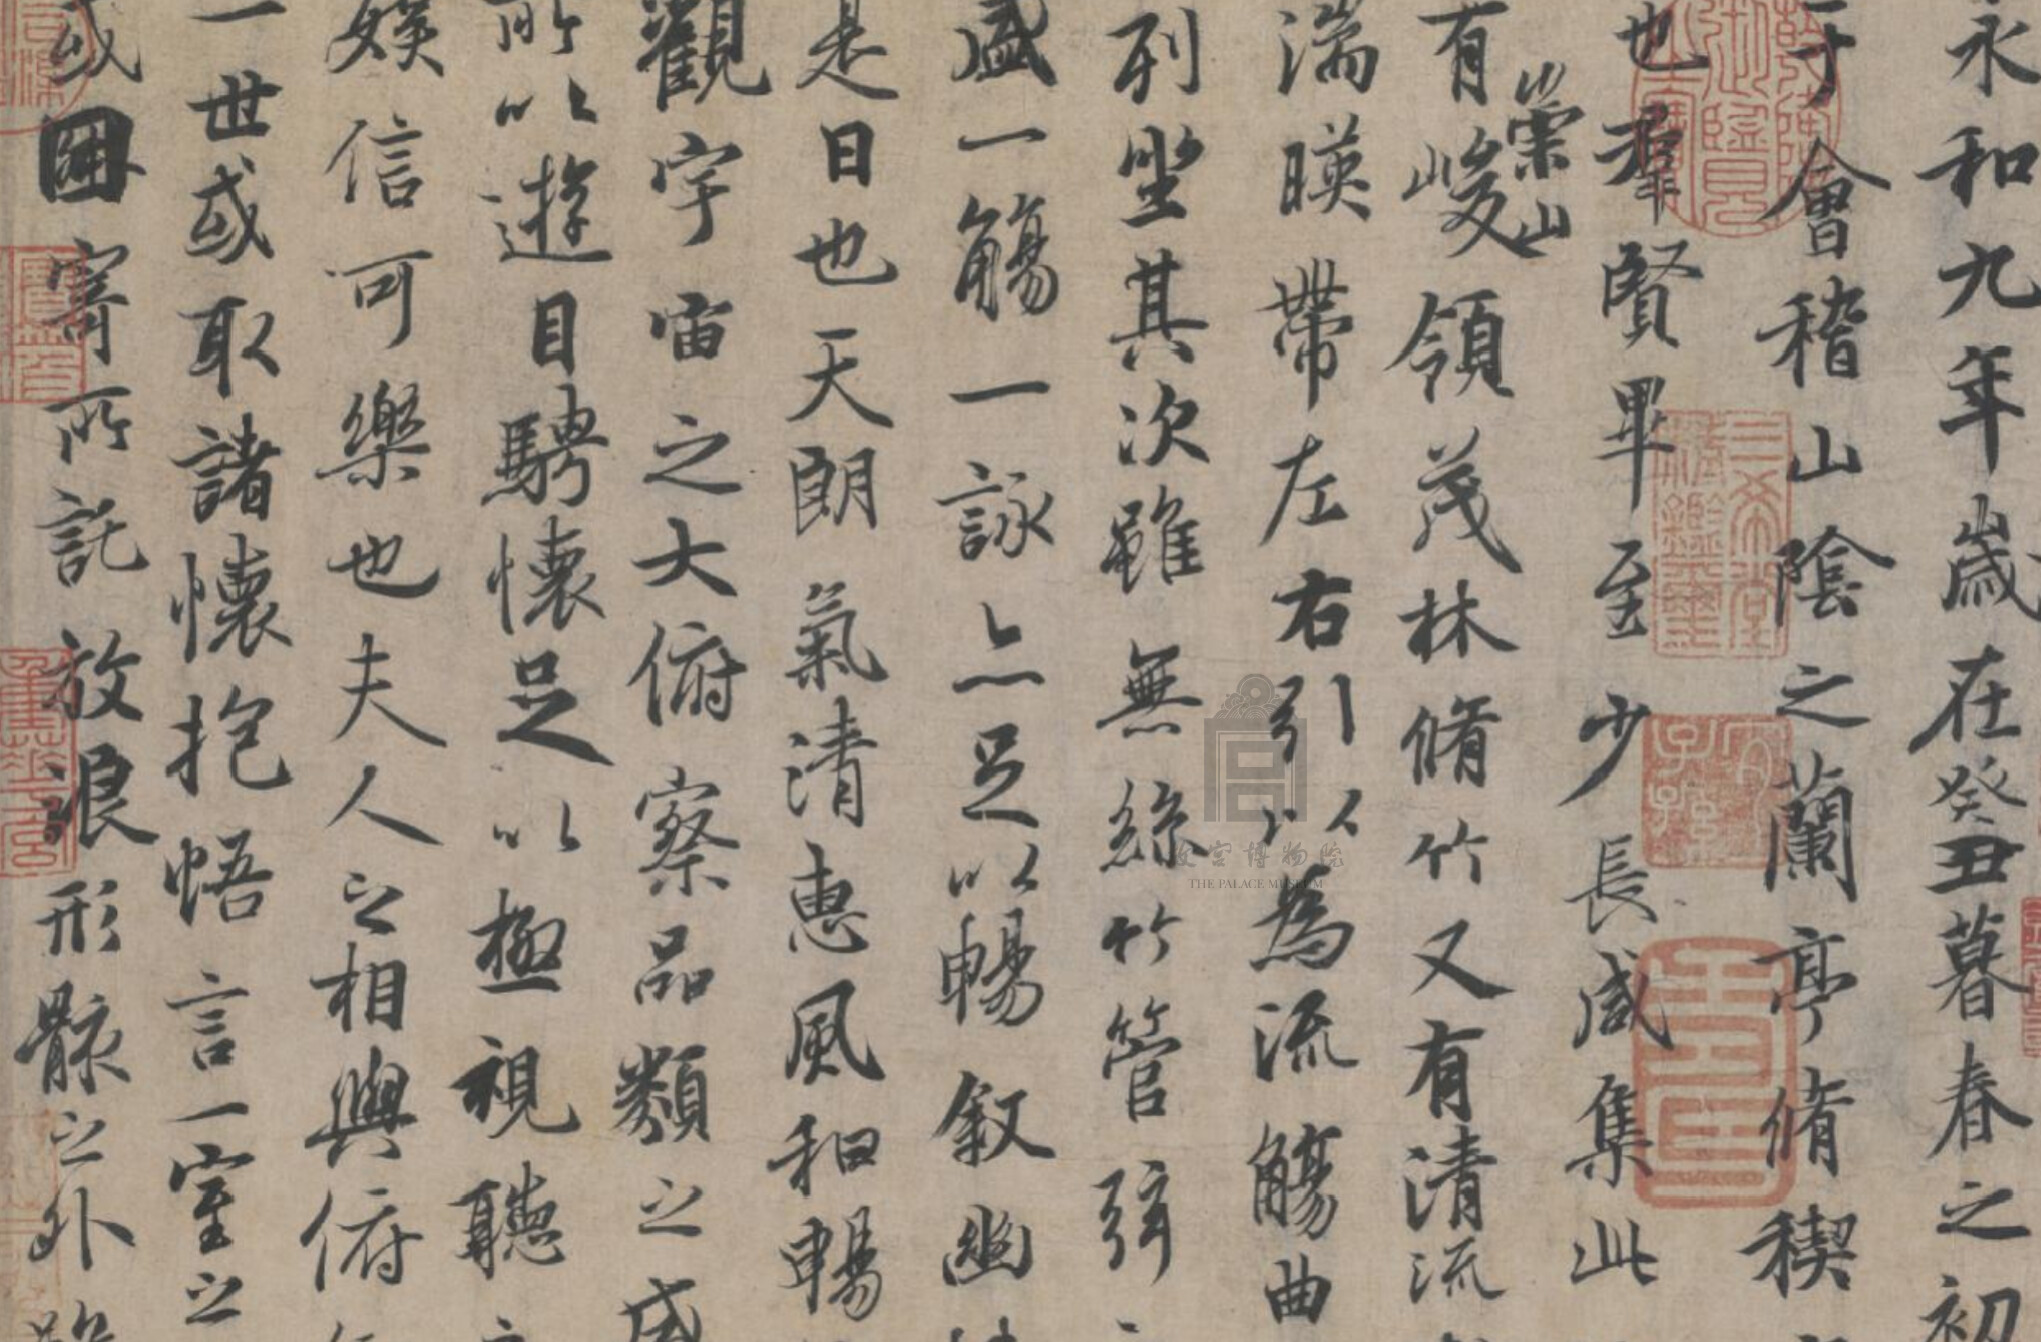 永和九年歲在癸丑暮春之初
于會稽山陰之蘭亭脩稧
也羣賢畢至少長咸集此
有崇山峻領茂林脩竹又有清流
湍暎帶左右引以為流觴曲
列坐其次雖無絲竹管弦
盛一觴一詠亦足以暢敘幽
是日也天朗氣清惠風和暢
觀宇宙之大俯察品類之盛
所以遊目騁懷足以極視聽
娛信可樂也夫人之相與俯
一世或取諸懷抱悟言一室之
或因寄所託放浪形骸之外
故宮博物院
THE PALACE MUSEUM